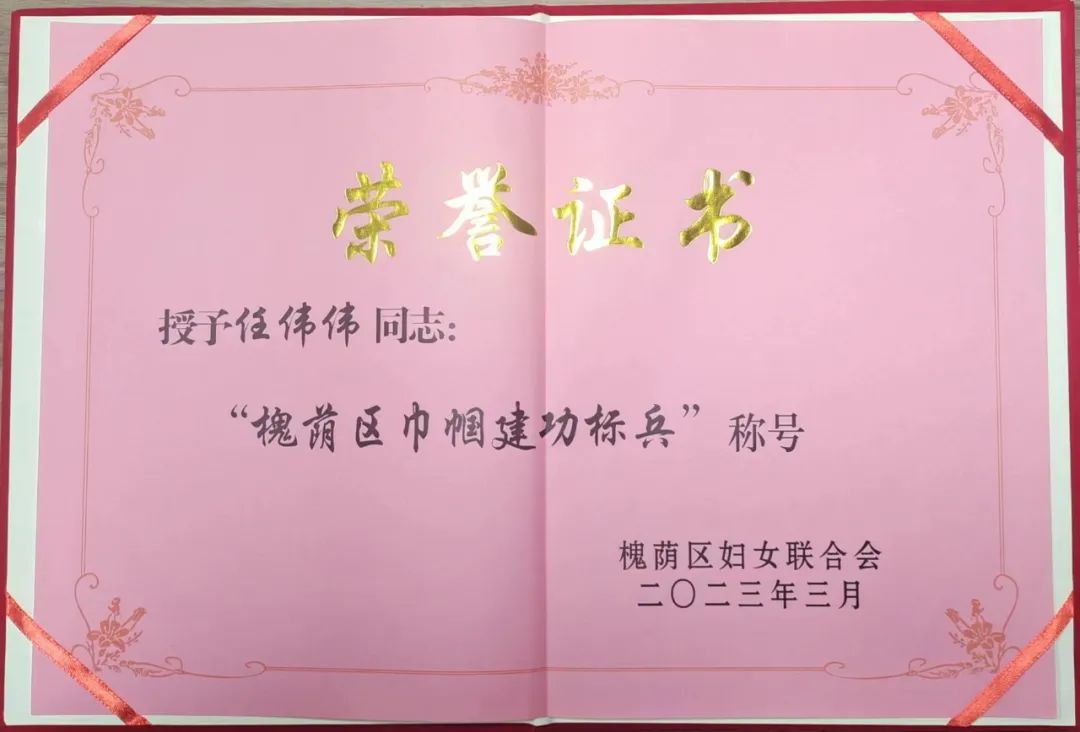 荣誉证书
授予任伟伟同志:
“槐荫区巾帼建功标兵”称号
槐荫区妇女联合会
二〇二三年三月